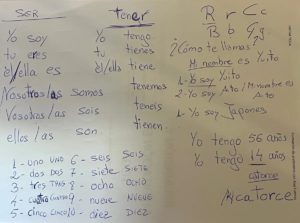 SER
Yo soy
tu eres
el/ella es
Nosotros/as somos
Vosotros/as sois
ellos/as son
1 - uno UNO
2 - dos DOS
3 - tres TRES
4 - cuatro CUATRO
5 - cinco CINCO
6 - seis SEIS
7 - siete SIETE
8 - ocho OCHO
9 - nueve NUEVE
10 - diez DIEZ
Tener
Yo tengo
tu tienes
el/ella tiene
tenemos
teneis
tienen
R r C c
B b G g
¿Cómo te llamas?
Mi nombre es Yito
1 - Yo soy Yito
2 - Yo soy Alto / Mi nombre es
Yo soy Japones
Yo tengo 56 años
Yo tengo 14 años
catorce